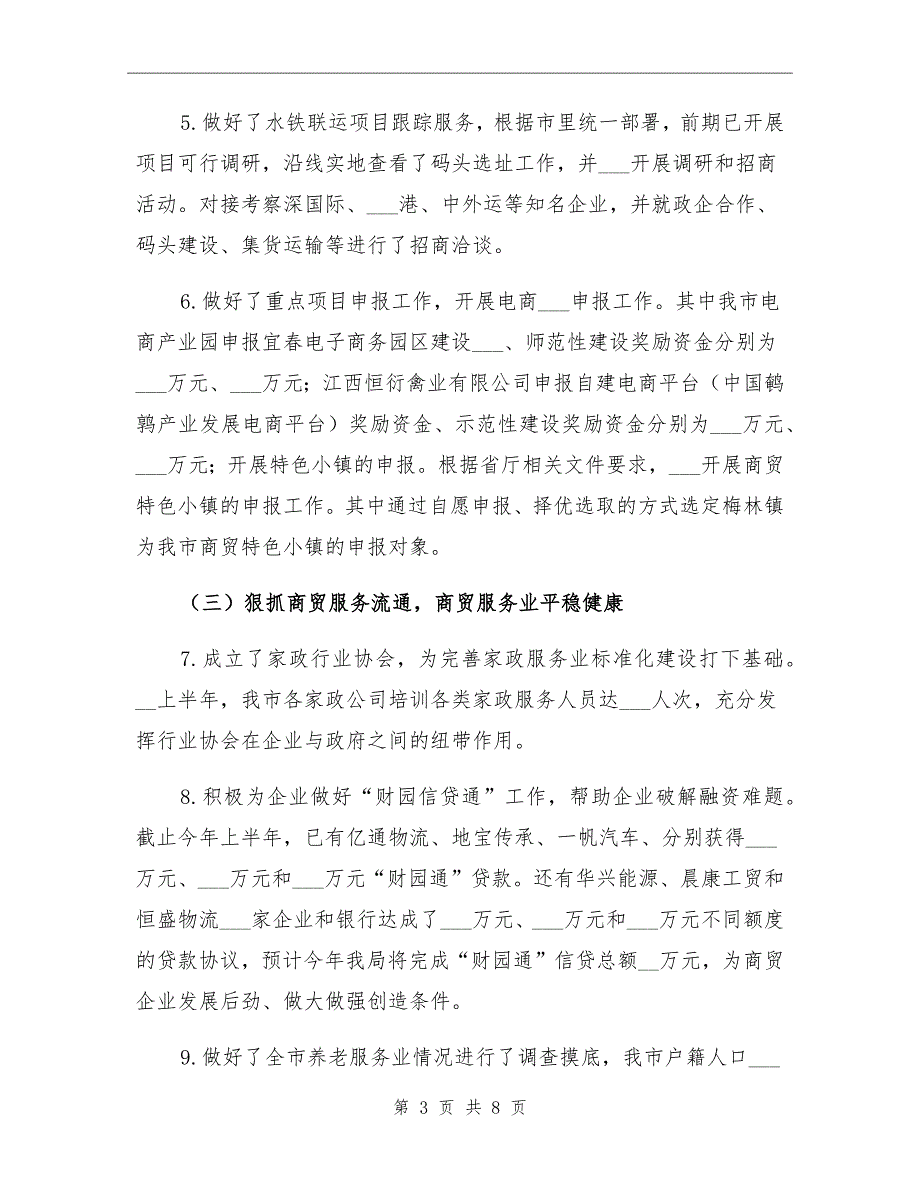 5.做好了水铁联运项目跟踪服务，根据市里统一部署，前期已开展
项目可行调研，沿线实地查看了码头选址工作，并___开展调研和招商
活动。对接考察深国际、___港、中外运等知名企业，并就政企合作、
码头建设、集货运输等进行了招商洽谈。
6.做好了重点项目申报工作，开展电商___申报工作。其中我市电
商产业园申报宜春电子商务园区建设___、师范性建设奖励资金分别为
___万元、___万元；江西恒衍禽业有限公司申报自建电商平台（中国鹌
鹑产业发展电商平台）奖励资金、示范性建设奖励资金分别为___万元、
___万元；开展特色小镇的申报。根据省厅相关文件要求，___开展商贸
特色小镇的申报工作。其中通过自愿申报、择优选取的方式选定梅林镇
为我市商贸特色小镇的申报对象。
（三）狠抓商贸服务流通，商贸服务业平稳健康
7.成立了家政行业协会，为完善家政服务业标准化建设打下基础。
__上半年，我市各家政公司培训各类家政服务人员达___人次，充分发
挥行业协会在企业与政府之间的纽带作用。
8.积极为企业做好“财园信贷通”工作，帮助企业破解融资难题。
截止今年上半年，已有亿通物流、地宝传承、一帆汽车、分别获得___
万元、___万元和___万元“财园通”贷款。还有华兴能源、晨康工贸和
恒盛物流___家企业和银行达成了___万元、___万元和___万元不同额度
的贷款协议，预计今年我局将完成“财园通”信贷总额__万元，为商贸
企业发展后劲、做大做强创造条件。
9.做好了全市养老服务业情况进行了调查摸底，我市户籍人口___
第 3 页 共 8 页